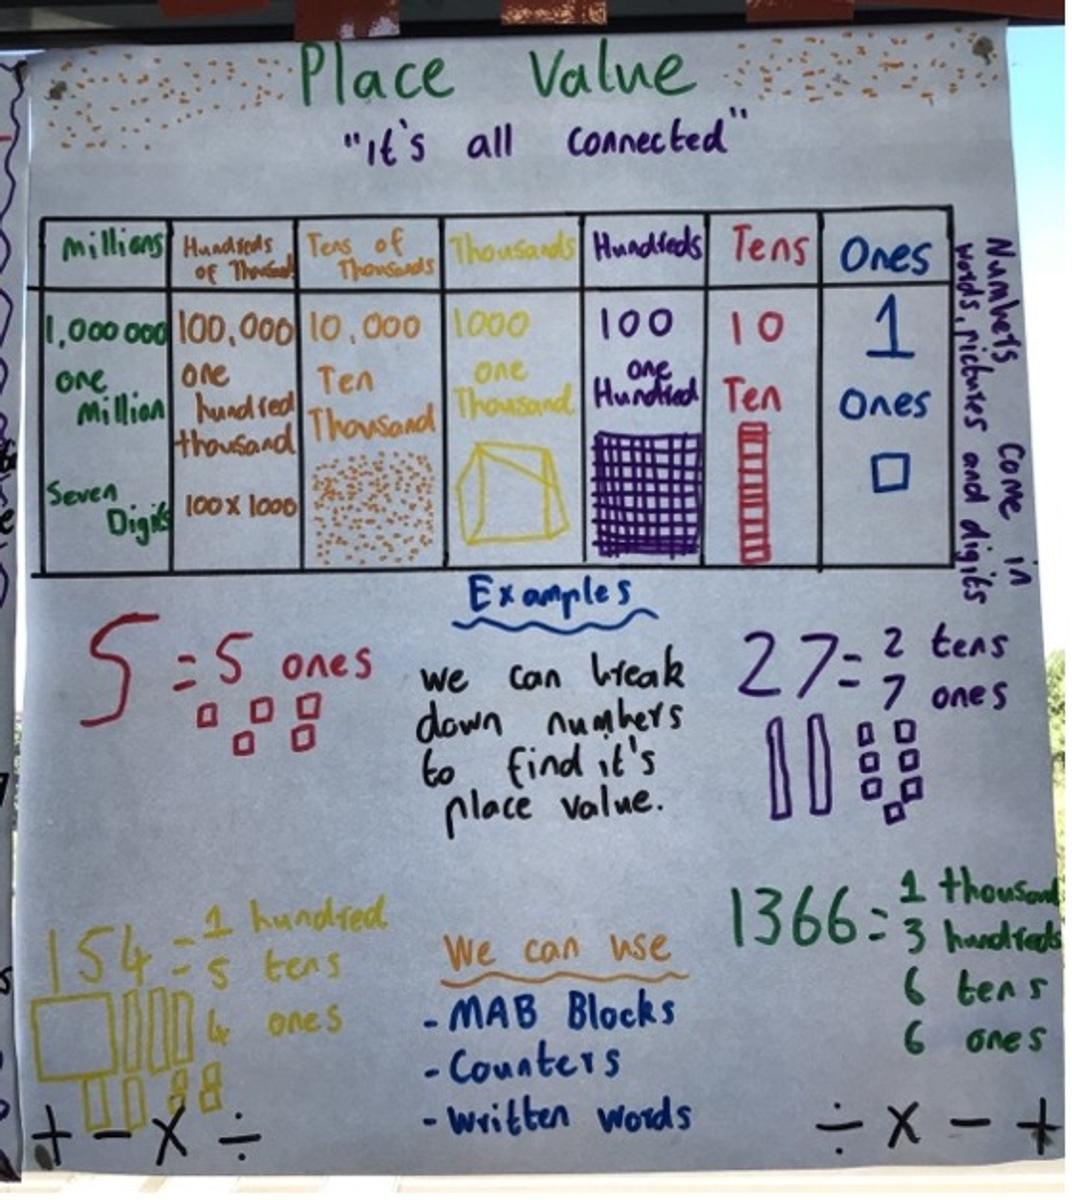 Place Value
"it's all connected"
Millions
Hundreds of Thousands
Tens of Thousands
Thousands
Hundreds
Tens
Ones
1,000 000
one
Million
Seven
Digits
100,000
one
hundred
thousand
100 x 1000
10,000
Ten
Thousand
1000
one
Thousand
100
one
Hundred
10
Ten
1
ones
Numbers come in
words, pictures and digits
Examples
5 = 5 ones
we can break
down numbers
to find it's
place value.
27 = 2 tens
7 ones
154 = 1 hundred
= 5 tens
4 ones
We can use
- MAB Blocks
- Counters
- written words
1366 = 1 thousand
3 hundreds
6 tens
6 ones
+ - x ÷
÷ x - +